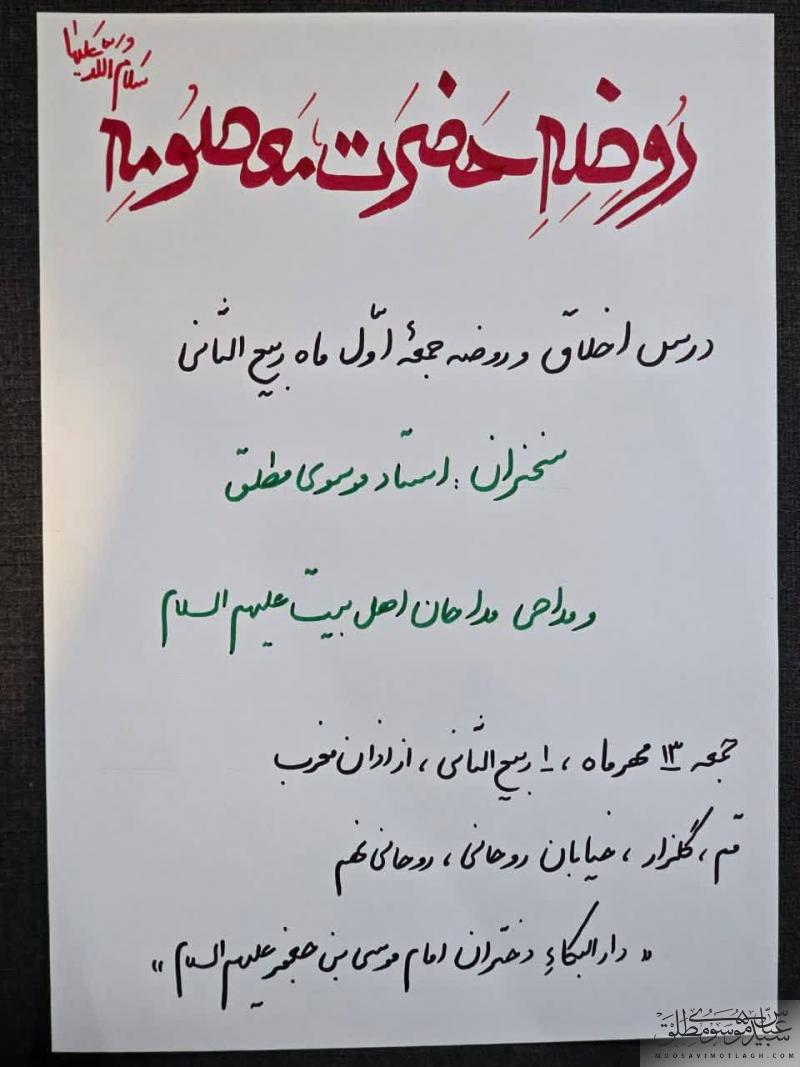 روضهٔ حضرت معصومه
سلام الله علیها
درس اخلاق و روضه جمعهٔ اوّل ماه ربیع الثانی
سخنران : استاد موسوی مطلق
و مداحی مداحان اهل بیت علیهم السلام
جمعه ۱۳ مهرماه ، ۱ ربیع الثانی ، از اذان مغرب
قم ، گلزار ، خیابان روحانی ، روحانی نهم
« دارالبکاءِ دختران امام موسی بن جعفر علیهم السلام »
سید عباس موسوی مطلق
MOOSAVIMOTLAGH.COM